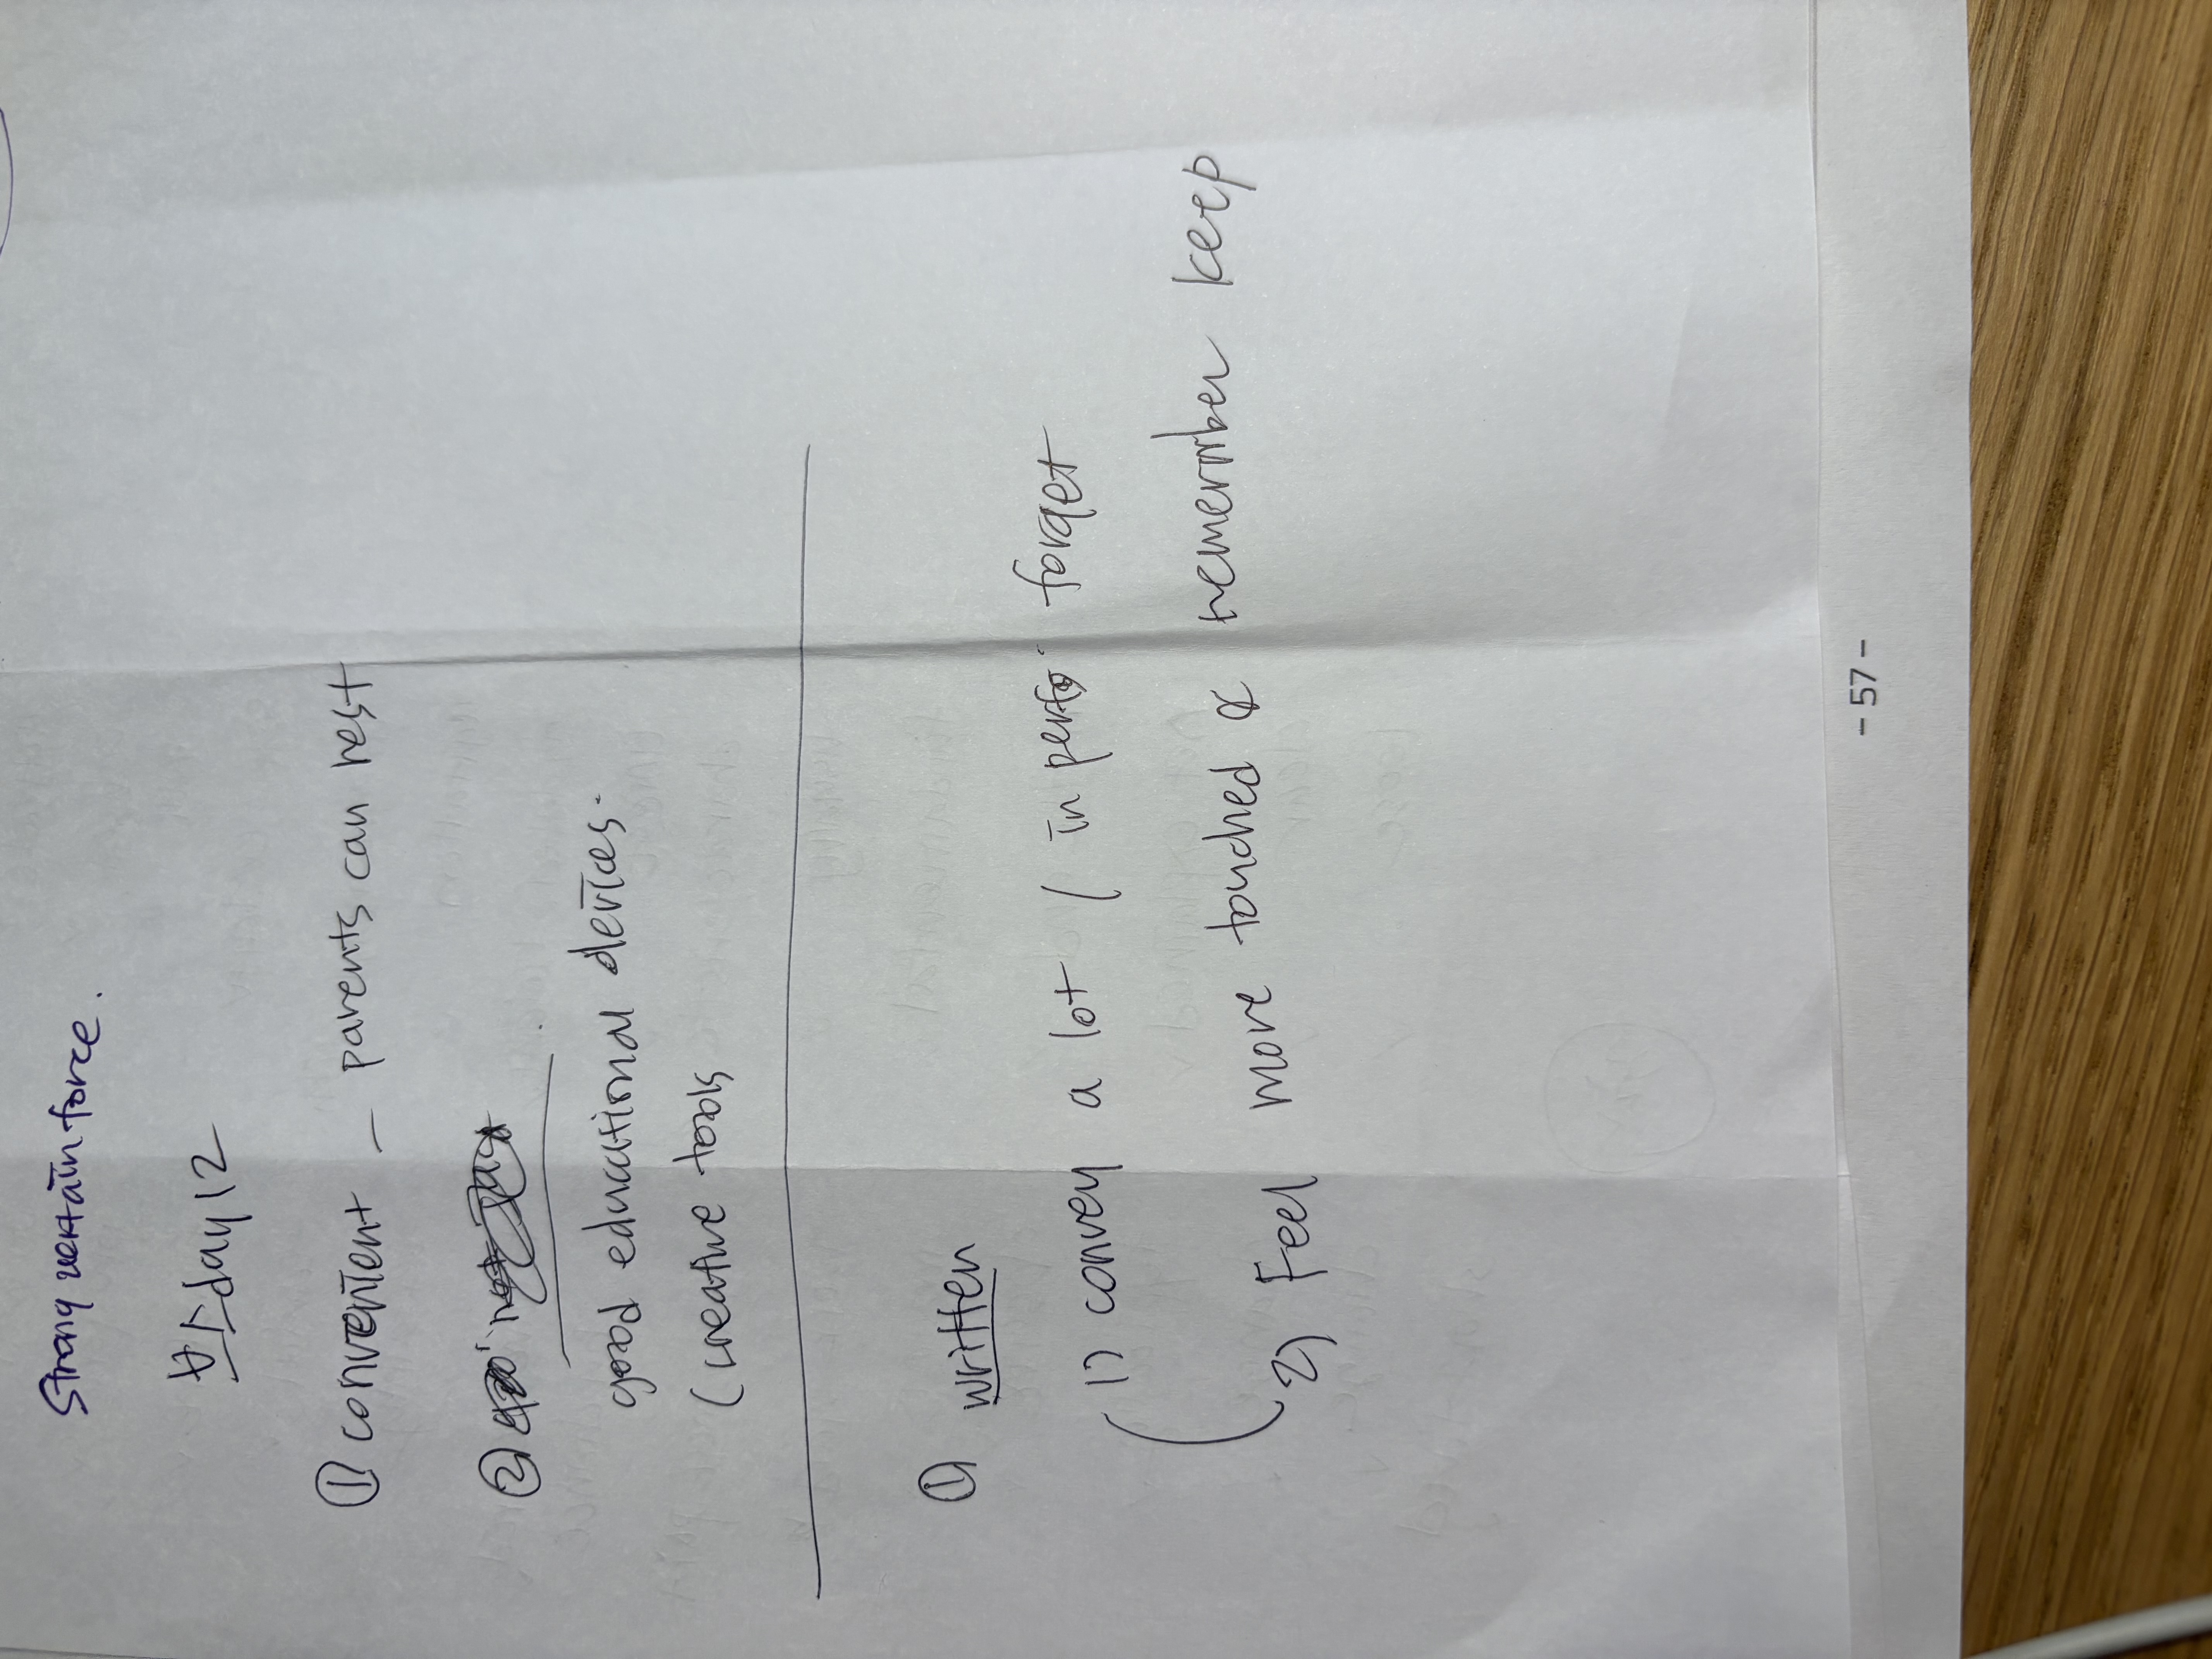 Strong
반 day 12
① convenient – parents can rest
②
good educational devices.
(creative tools
① written
1) convey a lot / in perso. forget
2) Feel more touched & remember keep
- 57 -